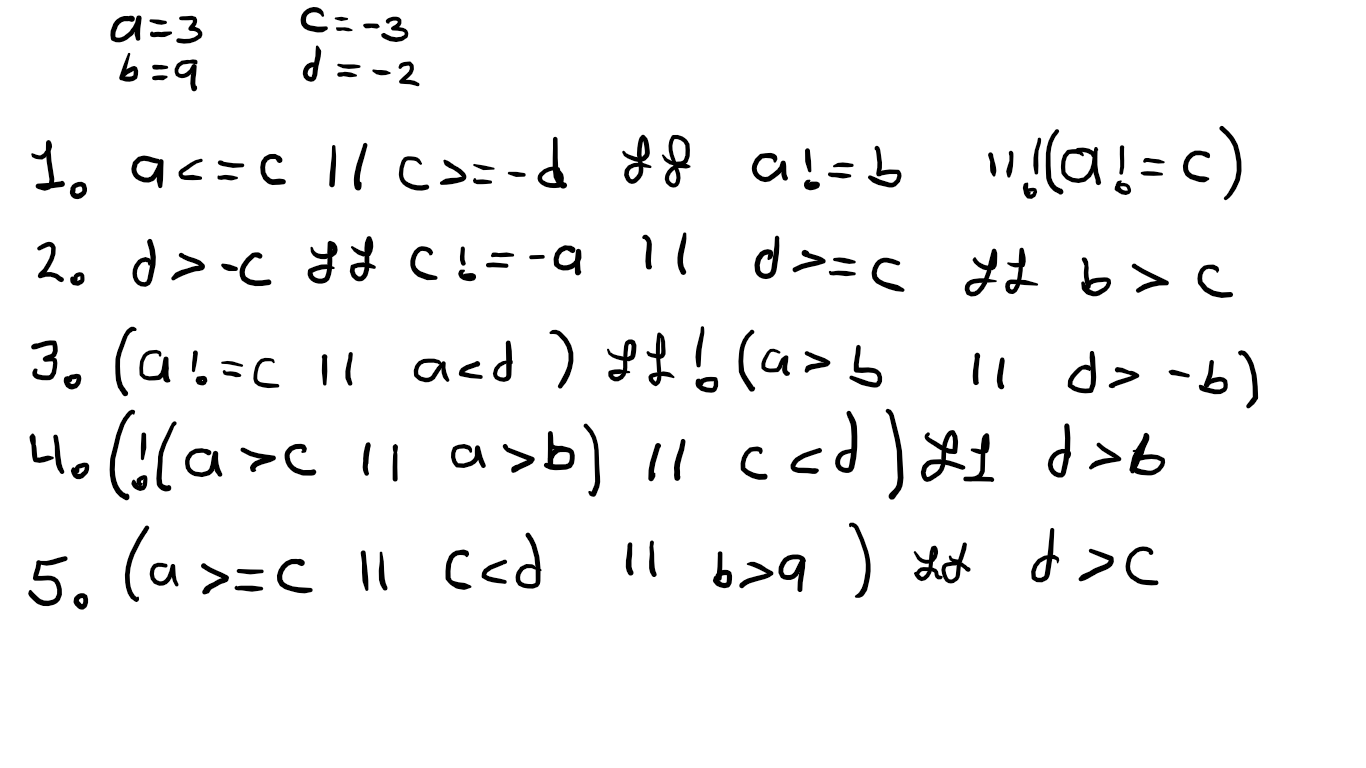 a=3 c=-3
b=9 d=-2
1. a<=c || c>=-d && a!=b || !(a!=c)
2. d>-c && c!=-a || d>=c && b>c
3. (a!=c || a<d) && !(a>b || d>-b)
4. (!(a>c || a>b) || c<d) && d>b
5. (a>=c || c<d || b>9) && d>c